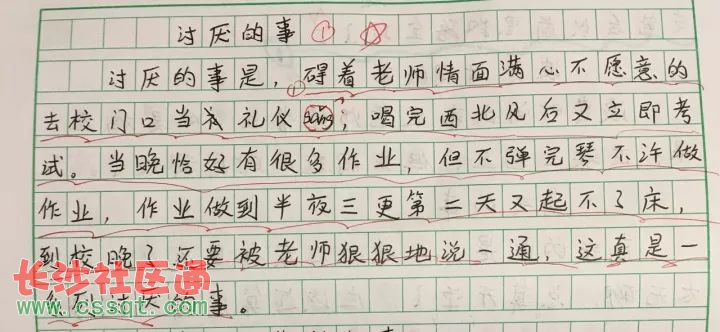 讨厌的事 ① 
讨厌的事是，碍着老师情面满心不愿意的
①
去校门口当礼仪gang，喝完西北风后又立即考
试。当晚恰好有很多作业，但不弹完琴不许做
作业，作业做到半夜三更第二天又起不了床，
到校晚了还要被老师狠狠地说一通，这真是一
讨厌的事。
长沙社区通
www.cssqt.com